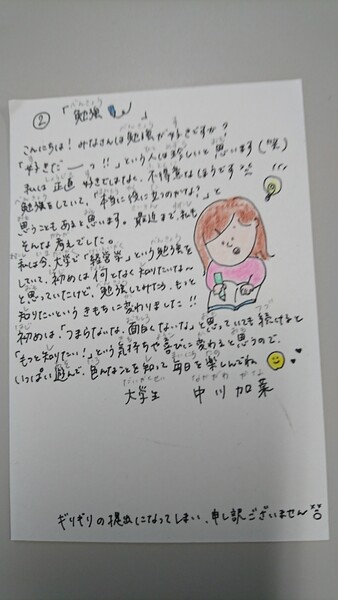 ② 「勉強」
べんきょう
こんにちは！みなさんは勉強が好きですか？
「好きだーっ!!」という人は珍しいと思います(笑)
私は正直好きではなく、不得意なほうです
勉強をしていて、「本当に役に立つのかな？」と
思うこともあると思います。最近まで、私も
そんな考えでした。
私は今、大学で「経営学」という勉強を
していて、初めは何となく知りたいな〜
と思っていたけど、勉強してみたら、もっと
知りたいというきもちに変わりました!!
初めは、「つまらないな、面白くないな」と思っていても続けると
「もっと知りたい！」という気持ちや喜びに変わると思うので、
いっぱい遊んで、色んなことを知って毎日を楽しんでね
だいがくせい なかがわ かな
大学生 中川 加菜
ギリギリの提出になってしまい、申し訳ございません